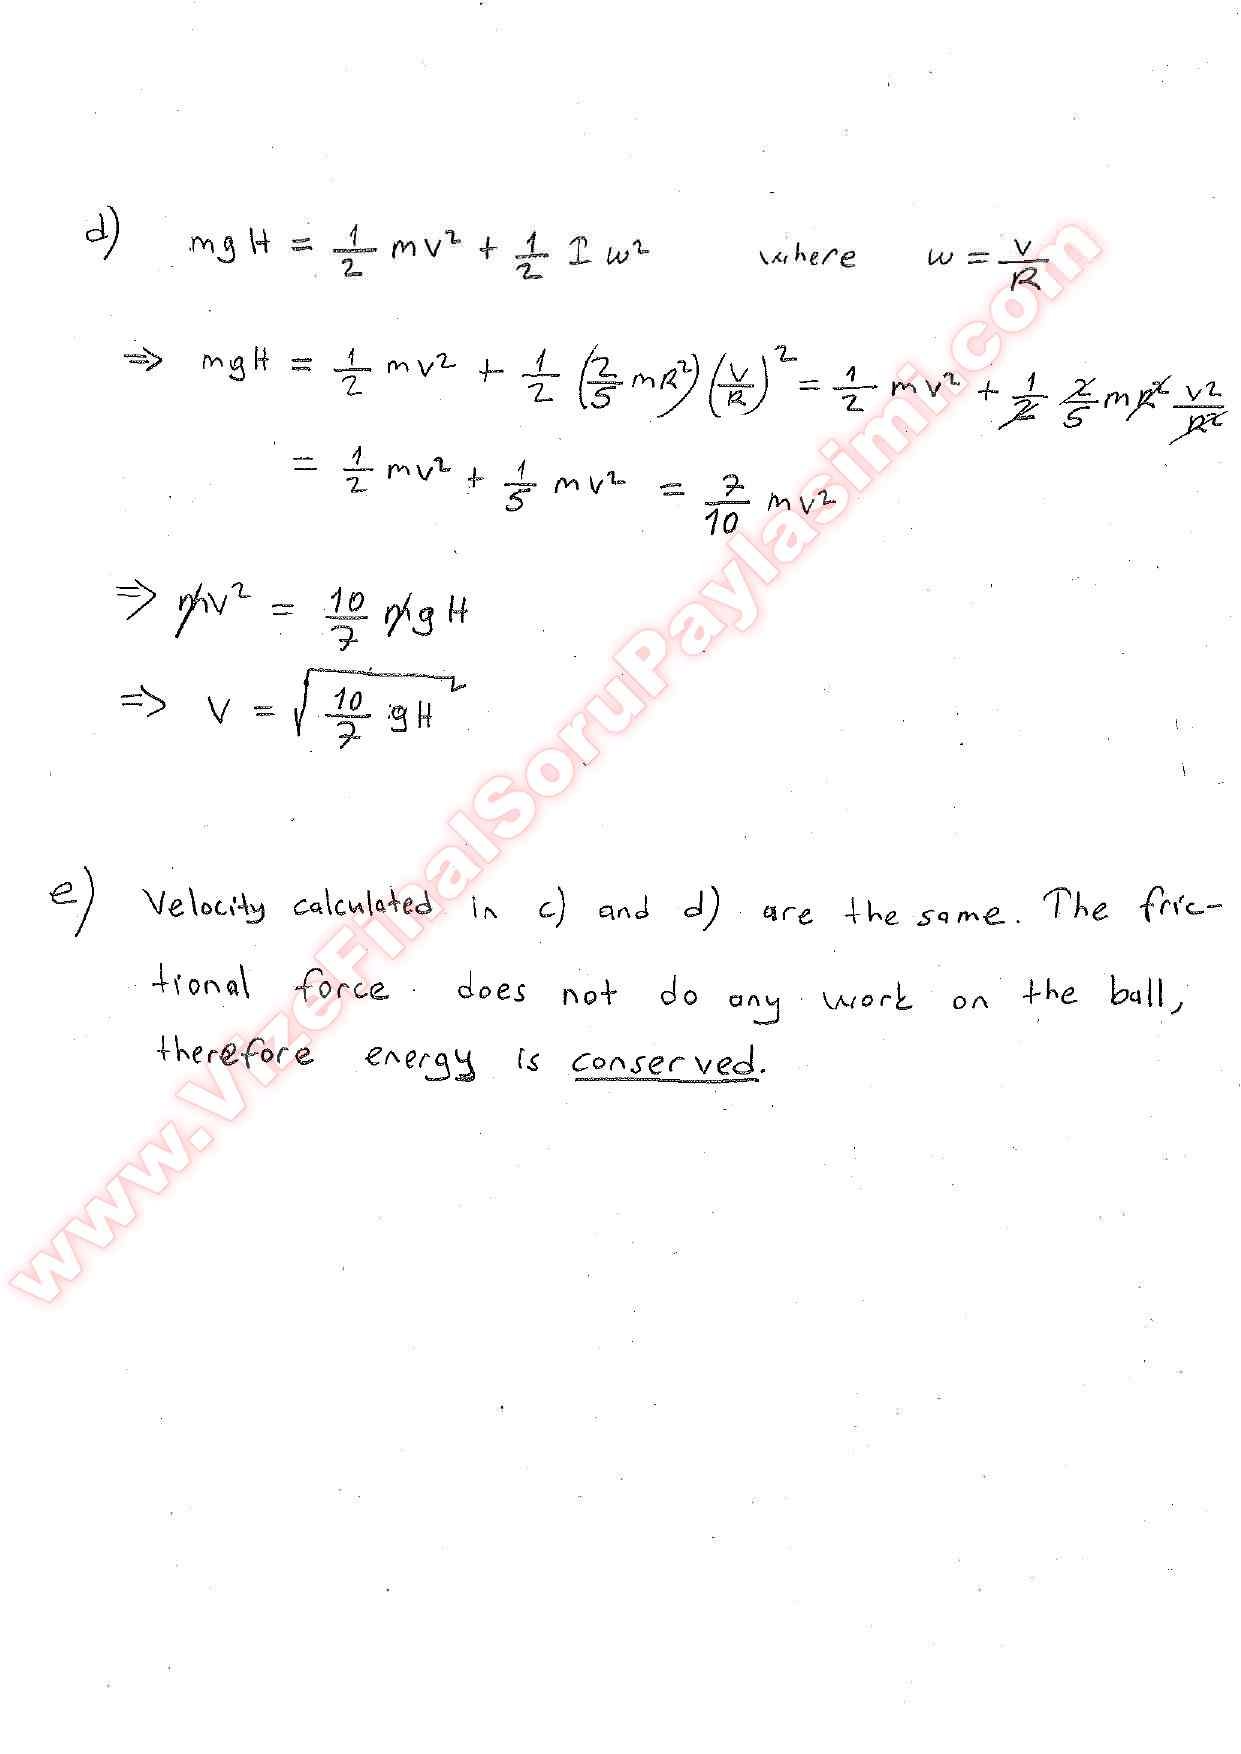 d) mgH = 1/2 mv² + 1/2 I w² where w = v/R
⇒ mgH = 1/2 mv² + 1/2 (2/5 mR²)(v/R)² = 1/2 mv² + 1/2 2/5 mR² v²/R²
= 1/2 mv² + 1/5 mv² = 7/10 mv²
⇒ mv² = 10/7 mgH
⇒ v = √(10/7 gH)
e) Velocity calculated in c) and d) are the same. The fric-
tional force does not do any work on the ball,
therefore energy is conserved.
www.VizeFinalSoruPaylasimi.com